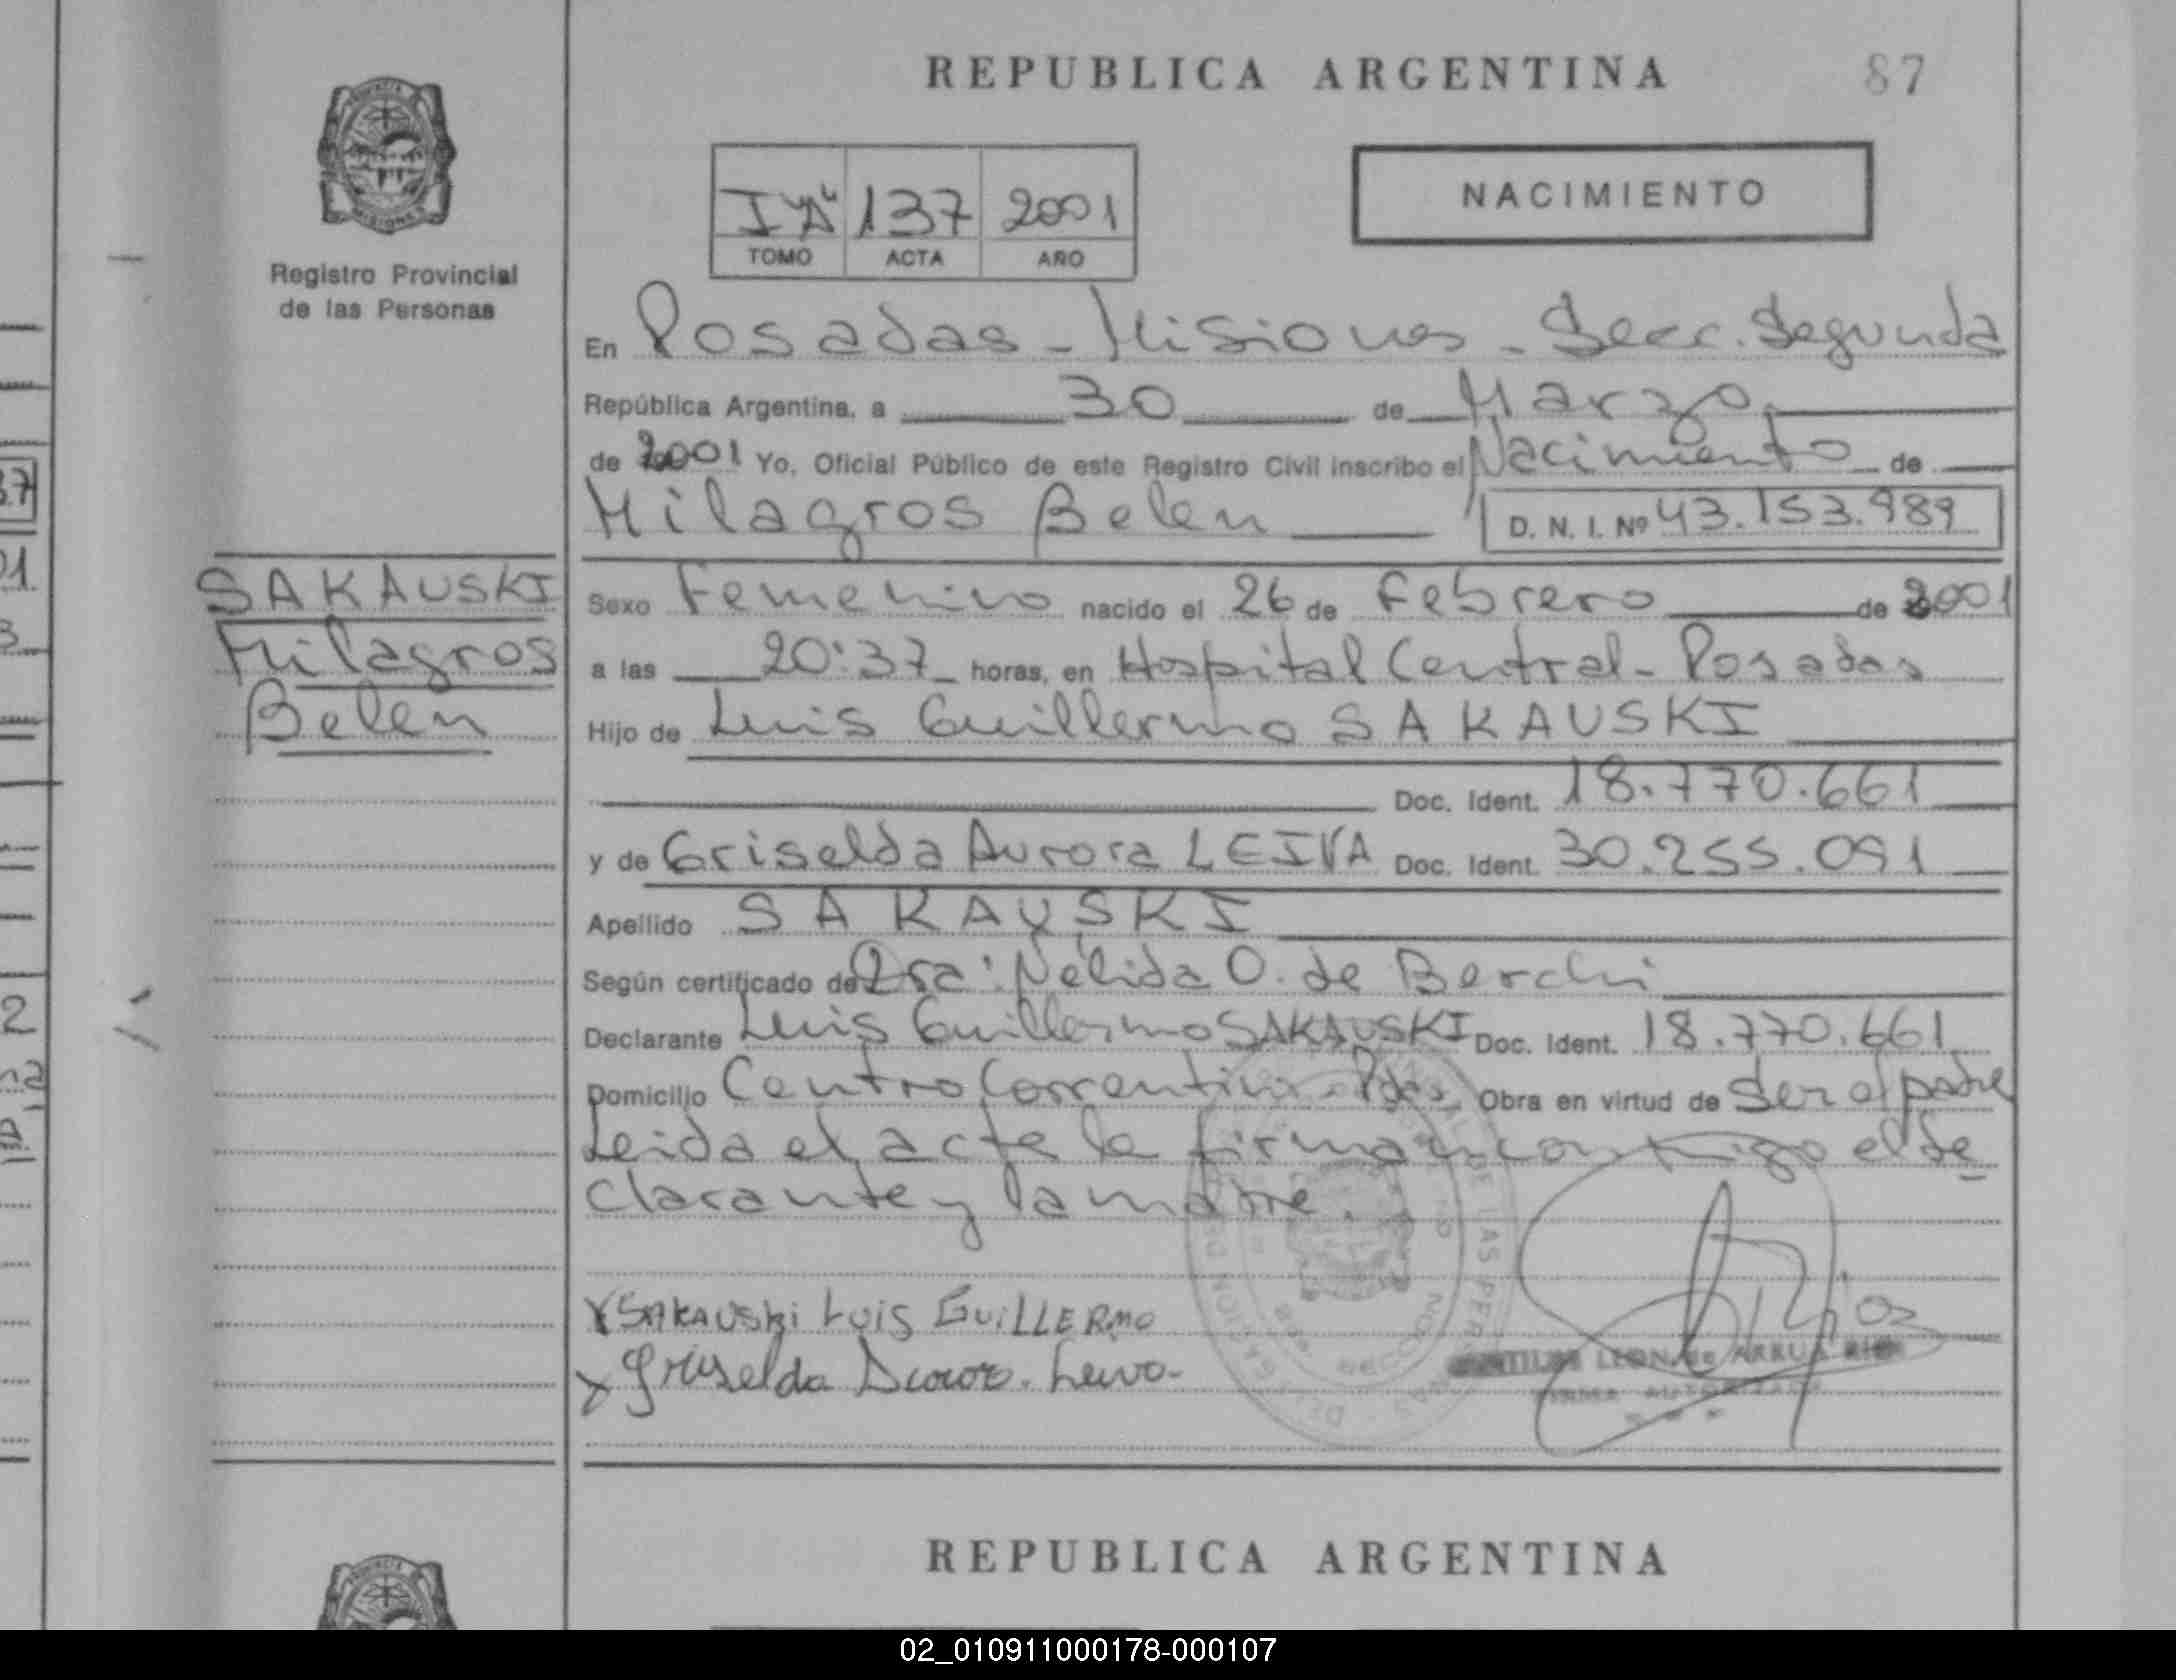 REPUBLICA ARGENTINA
87
NACIMIENTO
137 2001
TOMO ACTA AÑO
Registro Provincial
de las Personas
En Posadas - Misiones - Secc. Segunda
República Argentina, a 30 de Marzo
de 2001 Yo, Oficial Público de este Registro Civil inscribo el Nacimiento de
Milagros Belen D. N. I. Nº 43.153.989
SAKAUSKI
Milagros
Belen
Sexo Femenino nacido el 26 de Febrero de 2001
a las 20:37 horas, en Hospital Central - Posadas
Hijo de Luis Guillermo SAKAUSKI
Doc. Ident. 18.770.661
y de Griselda Aurora LEIVA Doc. Ident. 30.255.091
Apellido SAKAUSKI
Según certificado de Dra: Nélida O. de Berchi
Declarante Luis Guillermo SAKAUSKI Doc. Ident. 18.770.661
Domicilio Centro Correntino - Pdas. Obra en virtud de Ser el padre
Leida el acta la firman conmigo el de
clarante y la madre.
X SAKAUSKI LUIS GUILLERMO
X Griselda Aurora Leiva-
LEON de ARRUA
FIRMA AUTORIZADA
REPUBLICA ARGENTINA
02_010911000178-000107